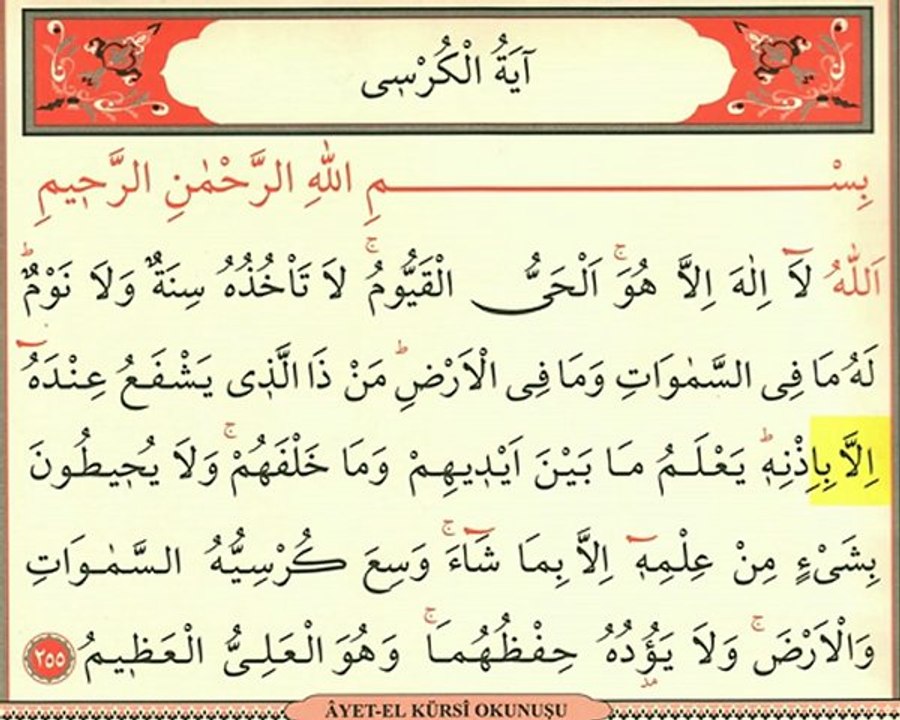 آيَةُ الْكُرْسِى
بِسْمِ اللّٰهِ الرَّحْمٰنِ الرَّحٖيمِ
اَللّٰهُ لَٓا اِلٰهَ اِلَّا هُوَۚ اَلْحَىُّ الْقَيُّومُۚ لَا تَاْخُذُهُ سِنَةٌ وَلَا نَوْمٌؕ
لَهُ مَا فِى السَّمٰوَاتِ وَمَا فِى الْاَرْضِؕ مَنْ ذَا الَّذٖى يَشْفَعُ عِنْدَهُٓ
اِلَّا بِاِذْنِهٖؕ يَعْلَمُ مَا بَيْنَ اَيْدٖيهِمْ وَمَا خَلْفَهُمْۚ وَلَا يُحٖيطُونَ
بِشَىْءٍ مِنْ عِلْمِهٖٓ اِلَّا بِمَا شَٓاءَۚ وَسِعَ كُرْسِيُّهُ السَّمٰوَاتِ
وَالْاَرْضَۚ وَلَا يَؤُدُهُ حِفْظُهُمَاۚ وَهُوَ الْعَلِىُّ الْعَظٖيمُ ٢٥٥
مد
ÂYET-EL KÜRSÎ OKUNUŞU